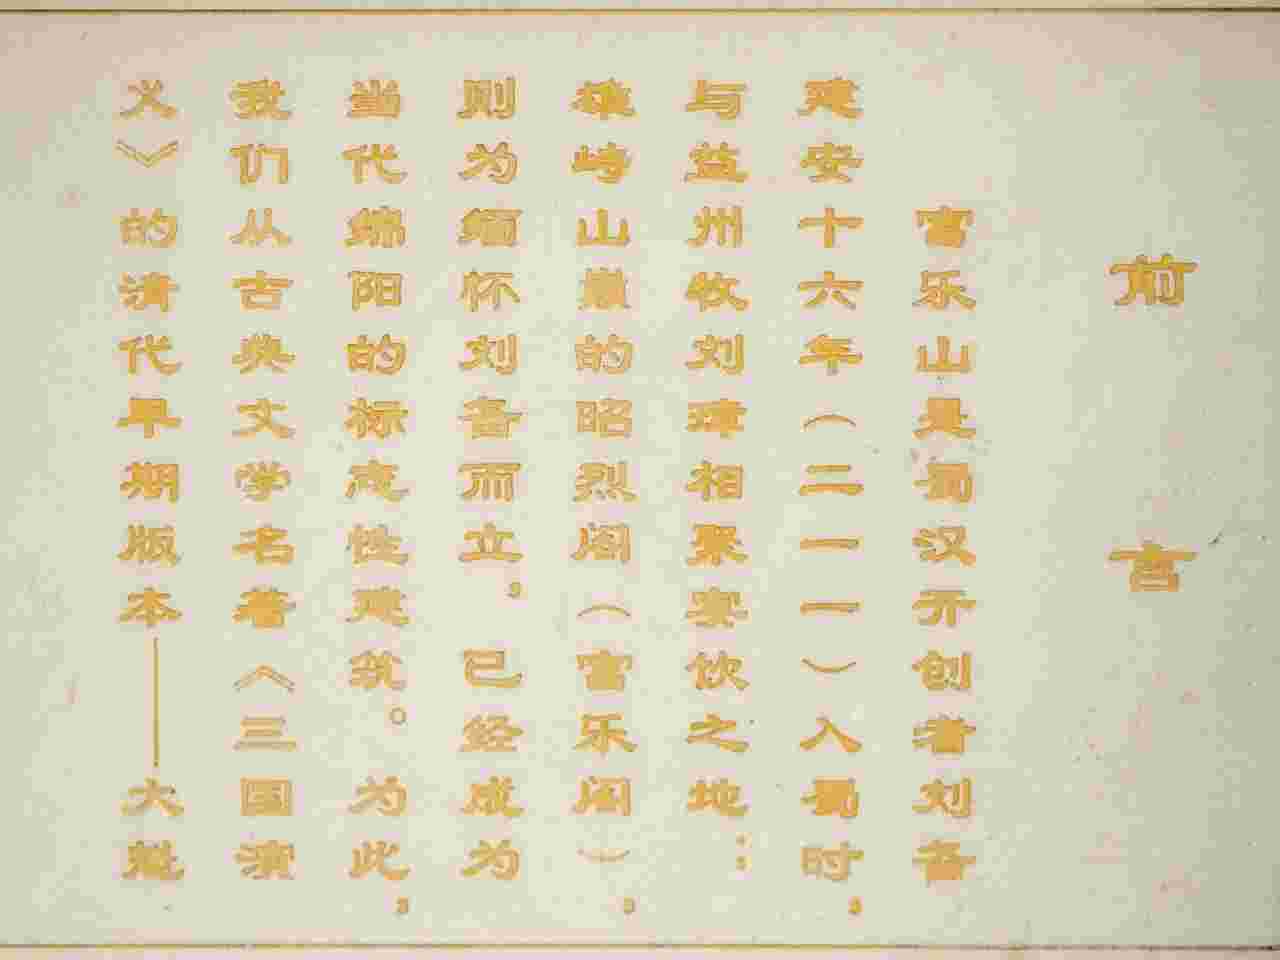 前言
富乐山是蜀汉开创者刘备
建安十六年（二一一）入蜀时，
与益州牧刘璋相聚宴饮之地：
雄峙山巅的昭烈阁（富乐阁），
则为缅怀刘备而立，已经成为
当代绵阳的标志性建筑。为此，
我们从古典文学名著《三国演
义》的清代早期版本——大魁